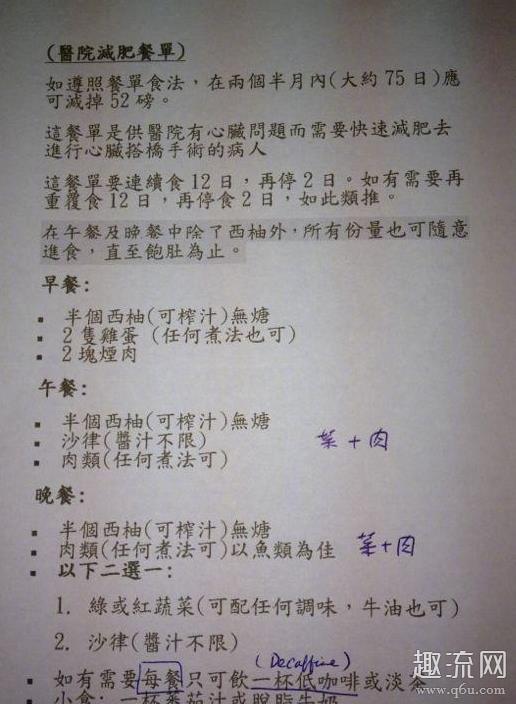 (醫院減肥餐單)
如遵照餐單食法，在兩個半月內(大約75日)應
可減掉52磅。
這餐單是供醫院有心臟問題而需要快速減肥去
進行心臟搭橋手術的病人
這餐單要連續食12日，再停2日。如有需要再
重覆食12日，再停食2日，如此類推。
在午餐及晚餐中除了西柚外，所有份量也可隨意
進食，直至飽肚為止。
早餐:
▪ 半個西柚(可榨汁)無煻
▪ 2隻雞蛋 (任何煮法也可)
▪ 2塊煙肉
午餐:
▪ 半個西柚(可榨汁)無煻
▪ 沙律(醬汁不限) 菜+肉
▪ 肉類(任何煮法可)
晚餐:
▪ 半個西柚(可榨汁)無煻
▪ 肉類(任何煮法可)以魚類為佳 菜+肉
▪ 以下二選一:
1. 綠或紅蔬菜(可配任何調味，牛油也可)
2. 沙律(醬汁不限)
(Decaffine)
▪ 如有需要每餐只可飲一杯低咖啡或淡茶
小食: 一杯蕃茄汁或脫脂牛奶
趣流网
www.q6u.com